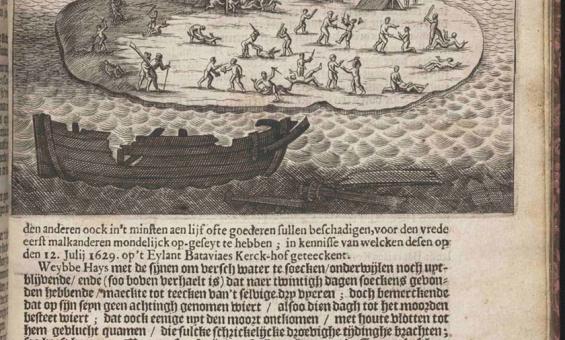 den anderen oock in't minsten aen lijf ofte goederen sullen beschadigen, voor den vrede
eerst malkanderen mondelijck op-geseyt te hebben ; in kennisse van welcken desen op
den 12. Julij 1629. op't Eylant Bataviaes Kerck-hof geteeckent.
Weybbe Hays met de sijnen om versch water te soecken/onderwijlen noch upt-
blijvende/ ende (soo boven verhaelt is) dat naer twintigh dagen soeckens gevon-
den hebbende/ maeckte tot teecken van't selvige dry vyeren ; doch bemerckende
dat op sijn seyn geen achtingh genomen wiert / alsoo dien dagh tot het moorden
besteet wiert ; dat oock eenige upt den moort ontkomen / met houte vlotten tot
hem gevlucht quamen / die sulcke schrickelijcke droevighe tijdinghe brachten ;